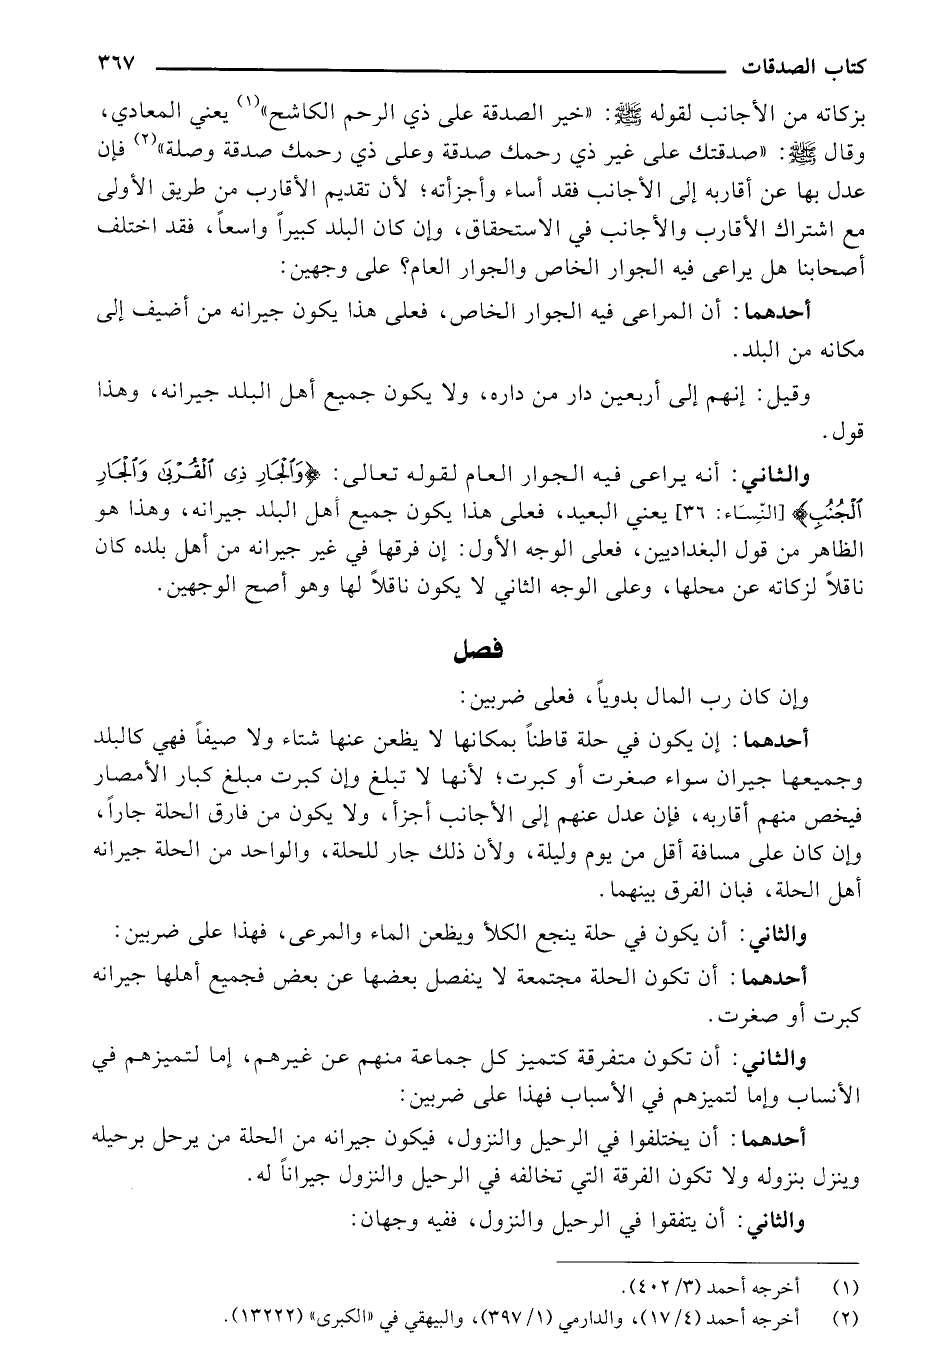 كتاب الصدقات ٣٦٧
بزكاته من الأجانب لقوله ﷺ: «خير الصدقة على ذي الرحم الكاشح»(١) يعني المعادي،
وقال ﷺ: «صدقتك على غير ذي رحمك صدقة وعلى ذي رحمك صدقة وصلة»(٢) فإن
عدل بها عن أقاربه إلى الأجانب فقد أساء وأجزأته؛ لأن تقديم الأقارب من طريق الأولى
مع اشتراك الأقارب والأجانب في الاستحقاق، وإن كان البلد كبيراً واسعاً، فقد اختلف
أصحابنا هل يراعى فيه الجوار الخاص والجوار العام؟ على وجهين:
أحدهما: أن المراعى فيه الجوار الخاص، فعلى هذا يكون جيرانه من أضيف إلى
مكانه من البلد.
وقيل: إنهم إلى أربعين دار من داره، ولا يكون جميع أهل البلد جيرانه، وهذا
قول.
والثاني: أنه يراعى فيه الجوار العام لقوله تعالى: ﴿وَٱلْجَارِ ذِى ٱلْقُرْبَىٰ وَٱلْجَارِ
ٱلْجُنُبِ﴾ [النِّسَاء: ٣٦] يعني البعيد، فعلى هذا يكون جميع أهل البلد جيرانه، وهذا هو
الظاهر من قول البغداديين، فعلى الوجه الأول: إن فرقها في غير جيرانه من أهل بلده كان
ناقلاً لزكاته عن محلها، وعلى الوجه الثاني لا يكون ناقلاً لها وهو أصح الوجهين.
فصل
وإن كان رب المال بدوياً، فعلى ضربين:
أحدهما: إن يكون في حلة قاطناً بمكانها لا يظعن عنها شتاء ولا صيفاً فهي كالبلد
وجميعها جيران سواء صغرت أو كبرت؛ لأنها لا تبلغ وإن كبرت مبلغ كبار الأمصار
فيخص منهم أقاربه، فإن عدل عنهم إلى الأجانب أجزأ، ولا يكون من فارق الحلة جاراً،
وإن كان على مسافة أقل من يوم وليلة، ولأن ذلك جار للحلة، والواحد من الحلة جيرانه
أهل الحلة، فبان الفرق بينهما.
والثاني: أن يكون في حلة ينجع الكلأ ويظعن الماء والمرعى، فهذا على ضربين:
أحدهما: أن تكون الحلة مجتمعة لا ينفصل بعضها عن بعض فجميع أهلها جيرانه
كبرت أو صغرت.
والثاني: أن تكون متفرقة كتميز كل جماعة منهم عن غيرهم، إما لتميزهم في
الأنساب وإما لتميزهم في الأسباب فهذا على ضربين:
أحدهما: أن يختلفوا في الرحيل والنزول، فيكون جيرانه من الحلة من يرحل برحيله
وينزل بنزوله ولا تكون الفرقة التي تخالفه في الرحيل والنزول جيراناً له.
والثاني: أن يتفقوا في الرحيل والنزول، ففيه وجهان:
(١) أخرجه أحمد (٣/ ٤٠٢).
(٢) أخرجه أحمد (٤/ ١٧)، والدارمي (١/ ٣٩٧)، والبيهقي في «الكبرى» (١٣٢٢٢).